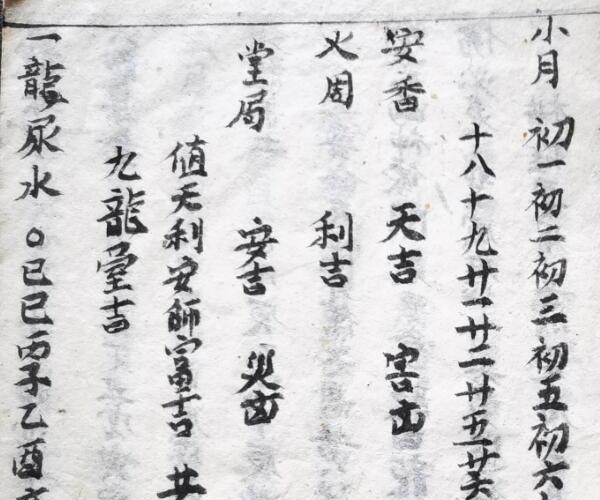 小月 初一初二初三初五初六
十八十九廿一廿二廿五廿六
安香 天吉 害凶
火周 利吉
堂局 安吉 災凶
值天利安師富吉 廿
九龍堂吉
一龍尿水 〇己巳丙子乙酉